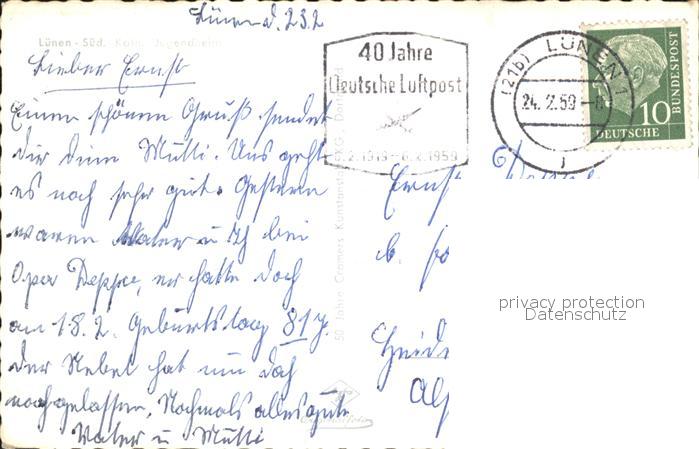 Lünen d. 23.2
Lünen - Süd. Kath. Jugendheim
Lieber Ernst
Einen schönen Gruß sendet
dir dein Mutti. Uns geht
es noch sehr gut. Gestern
waren Vater u Ich bei
Opa Deppe, er hatte doch
am 18.2. Geburtstag 81 J.
der Nebel hat nun doch
nachgelassen, Nochmals alles gute
Vater u Mutti
40 Jahre
Deutsche Luftpost
6.2.1919 - 6.2.1959
(21b) LÜNEN 1
24.2.59
j
10
DEUTSCHE
BUNDESPOST
50 Jahre Cramers Kunstanst. KG, Dortmund
Ernst
b.
privacy protection
Datenschutz